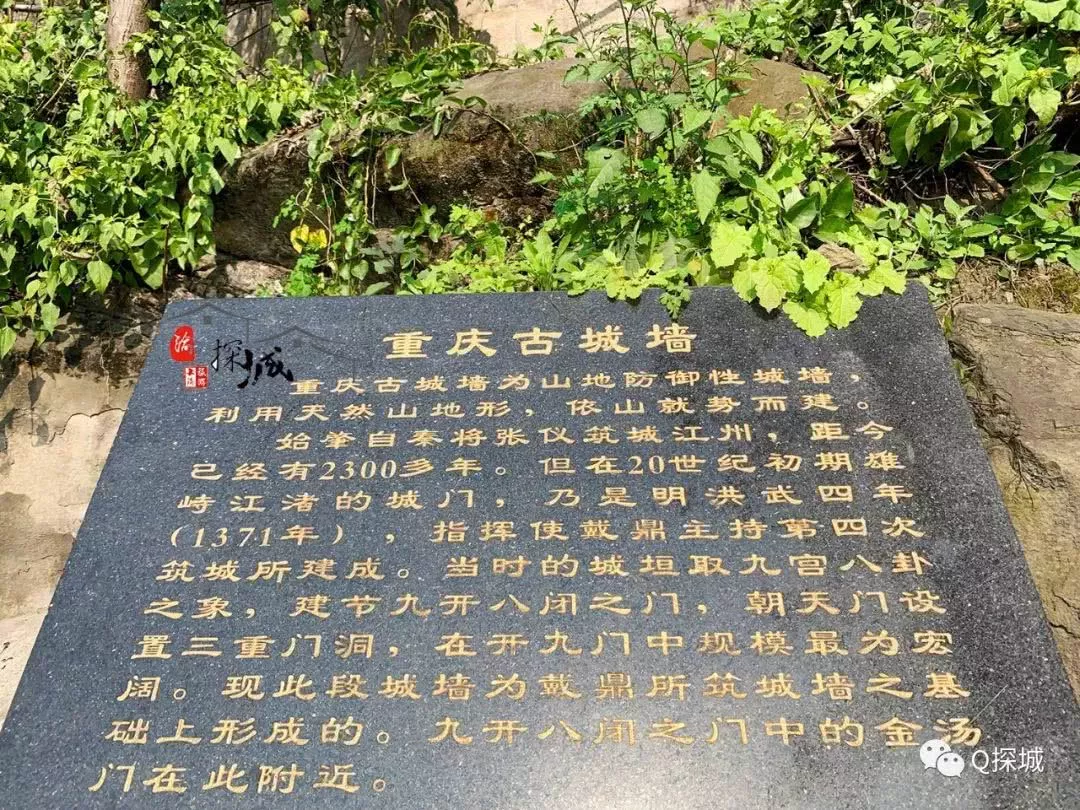 重庆古城墙
重庆古城墙为山地防御性城墙，
利用天然山地形，依山就势而建。
始肇自秦将张仪筑城江州，距今
已经有2300多年。但在20世纪初期雄
峙江渚的城门，乃是明洪武四年
（1371年），指挥使戴鼎主持第四次
筑城所建成。当时的城垣取九宫八卦
之象，建节九开八闭之门，朝天门设
置三重门洞，在开九门中规模最为宏
阔。现此段城墙为戴鼎所筑城墙之基
础上形成的。九开八闭之门中的金汤
门在此附近。
探城
Q探城